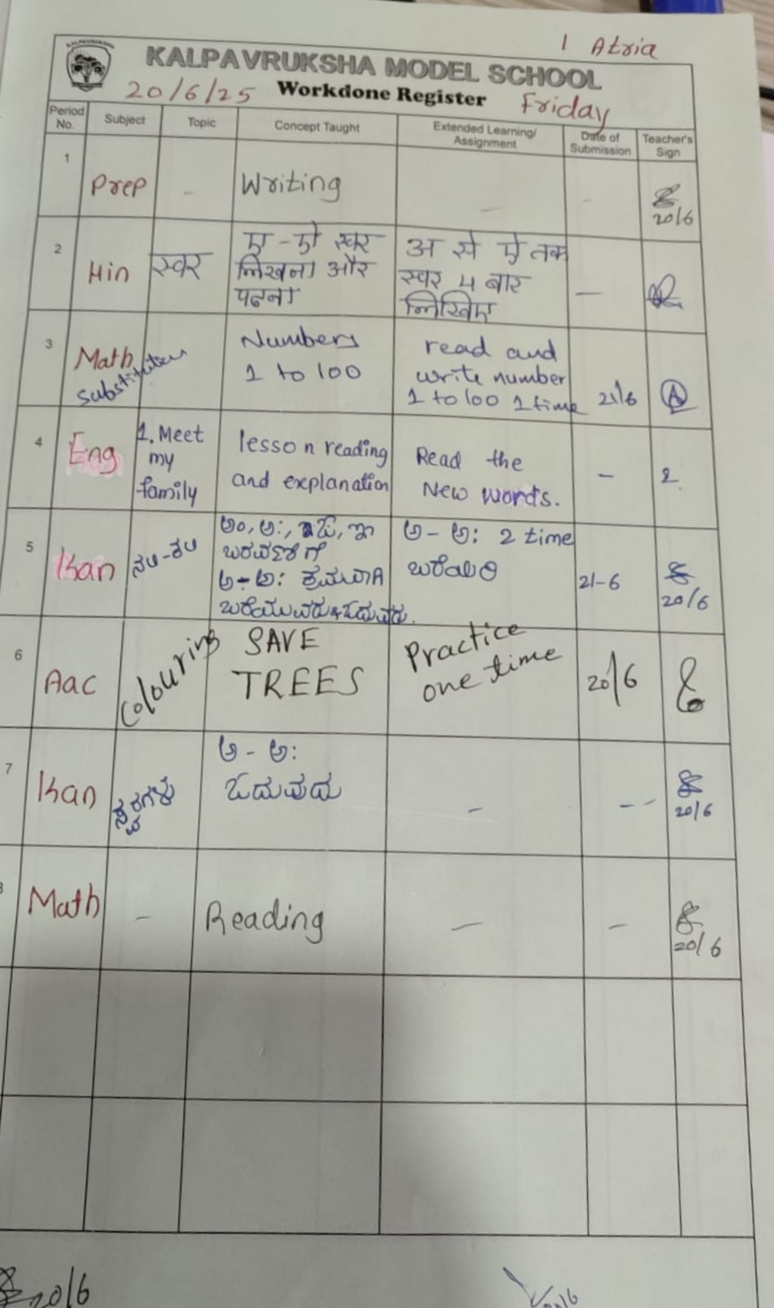 1 Atria
KALPAVRUKSHA MODEL SCHOOL
20/6/25 Workdone Register Friday
Period No. Subject Topic Concept Taught Extended Learning/ Assignment Date of Submission Teacher's Sign
1 Prep - Writing - - 20/6
2 Hin स्वर ए - ऐ स्वर
लिखना और
पढना
अ से ऐ तक
स्वर 4 बार
लिखिए
-
3 Math
Substitution
Numbers
1 to 100
read and
write number
1 to 100 1 time
21/6 A
4 Eng
1. Meet
my
family
lesson reading
and explanation
Read the
New words.
-
5 Kan
ಅಂ, ಅಃ,
ಅ-ಅಃ ಕ್ರಮವಾಗಿ
ಬರೆಯುವದು & ಓದುವದು.
ಅ - ಅಃ 2 time
ಬರೆಯಿರಿ
21-6
20/6
6 Aac
Colouring
SAVE
TREES
Practice
one time
20/6
7 Kan
ಸ್ವರಗಳು
ಅ - ಅಃ
ಓದುವದು
- -
20/6
8 Math - Reading - -
20/6
20/6